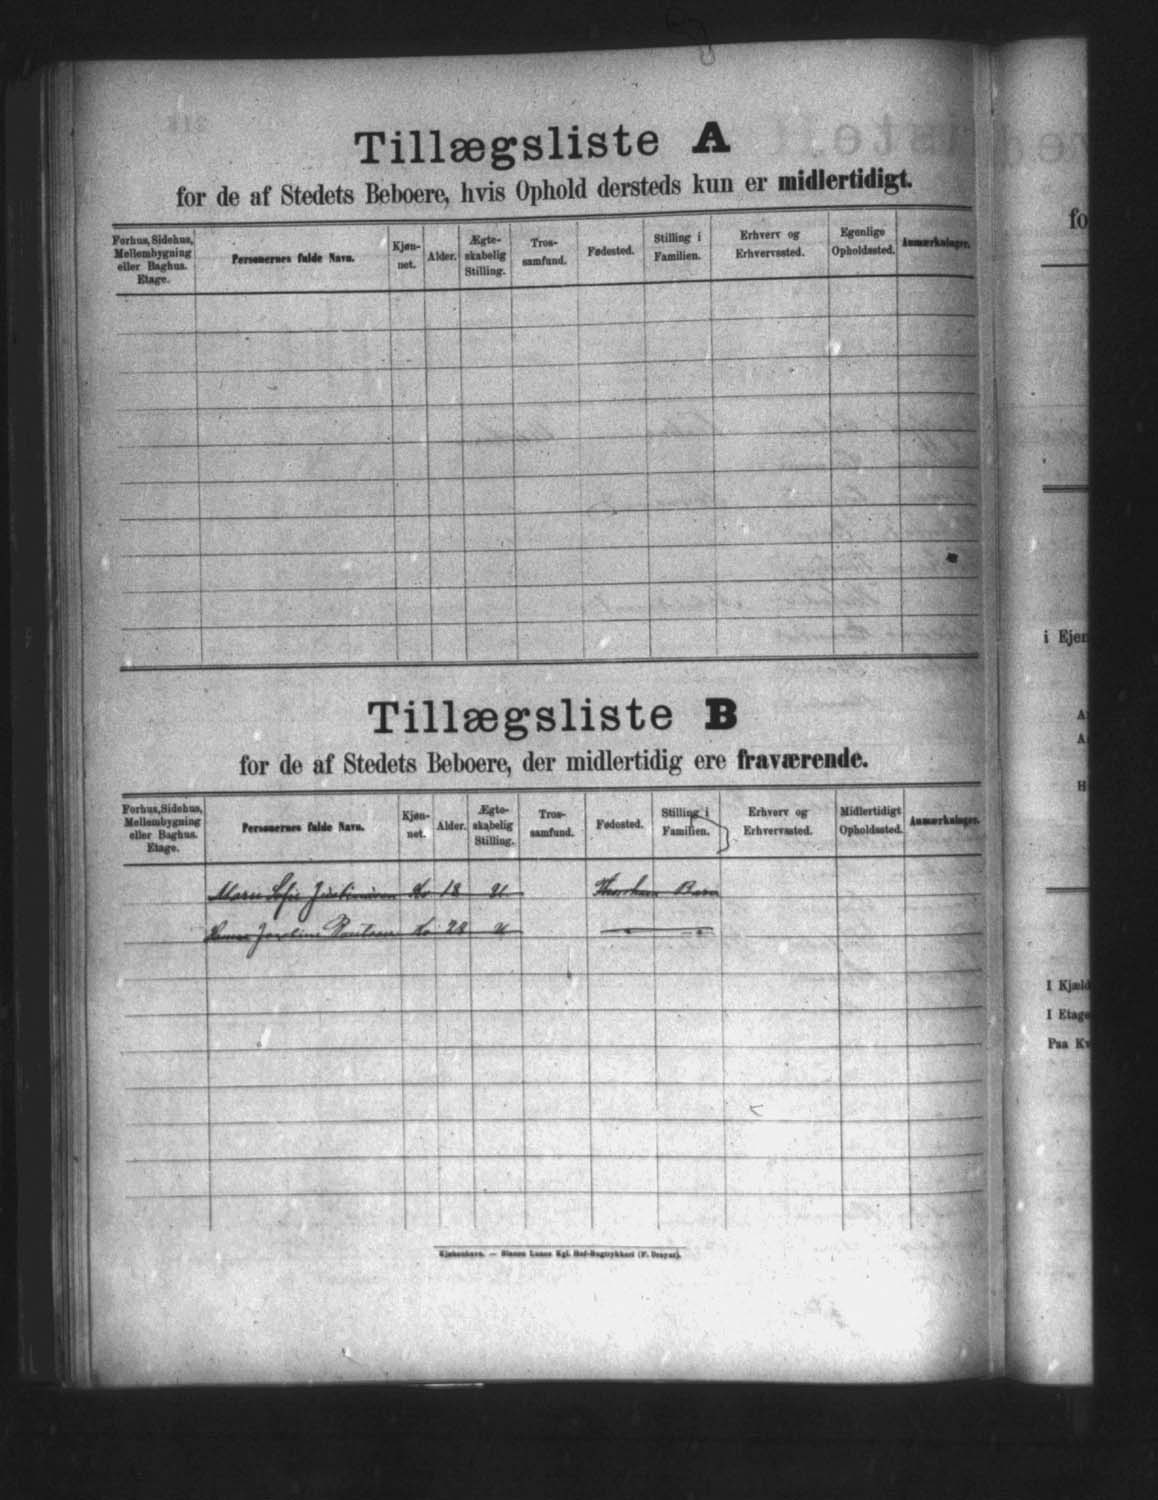 Tillægsliste A
for de af Stedets Beboere, hvis Ophold dersteds kun er midlertidigt.
Forhus, Sidehus, Mellembygning eller Baghus. Etage. Personernes fulde Navn. Kjøn- net. Alder. Ægte- skabelig Stilling. Tros- samfund. Fødested. Stilling i Familien. Erhverv og Erhvervssted. Egenlige Opholdssted. Anmærkninger.
Tillægsliste B
for de af Stedets Beboere, der midlertidig ere fraværende.
Forhus, Sidehus, Mellembygning eller Baghus. Etage. Personernes fulde Navn. Kjøn- net. Alder. Ægte- skabelig Stilling. Tros- samfund. Fødested. Stilling i Familien. Erhverv og Erhvervssted. Midlertidigt Opholdssted. Anmærkninger.
Marie Sofie Justinussen Ko 18 U Thorshavn Barn
Joseline Poulsen Ko 28 U
Kjøbenhavn. — Bianco Lunos Kgl. Hof-Bogtrykkeri (F. Dreyer).
fo
i Ejen
A
A
H
I Kjæld
I Etage
Paa Kv